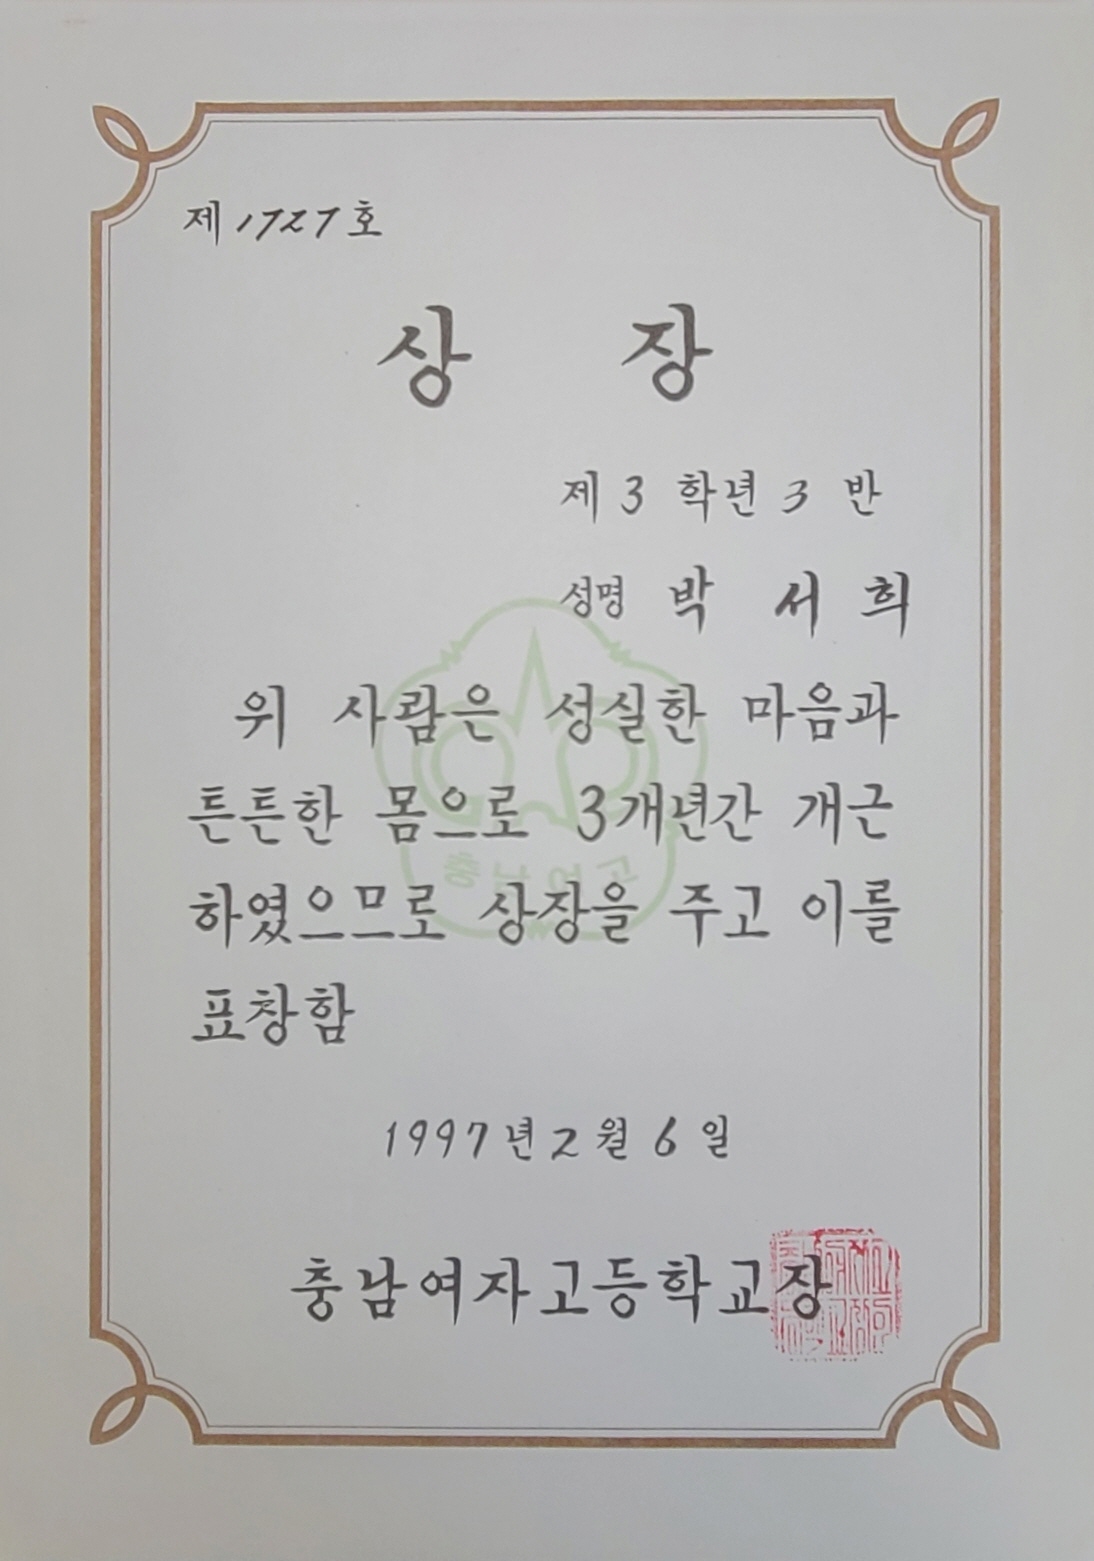 제 1727 호
상 장
제 3 학년 3 반
성명 박 서 희
위 사람은 성실한 마음과
튼튼한 몸으로 3개년간 개근
하였으므로 상장을 주고 이를
표창함
충남여고
1997년 2월 6일
충남여자고등학교장